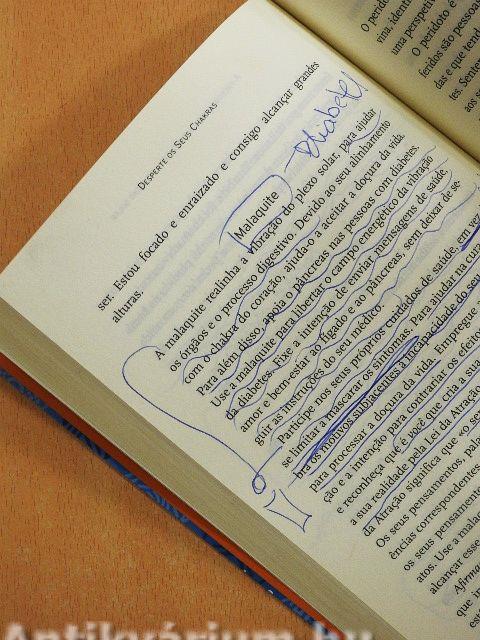 DESPERTE OS SEUS CHAKRAS
ser. Estou focado e enraizado e consigo alcançar grandes
alturas.
Malaquite
Diabetes
A malaquite realinha a vibração do plexo solar, para ajudar
os órgãos e o processo digestivo. Devido ao seu alinhamento
com o chakra do coração, ajuda-o a aceitar a doçura da vida.
Para além disso, apoia o pâncreas nas pessoas com diabetes.
Use a malaquite para libertar o campo energético da vibração
da diabetes. Fixe a intenção de enviar mensagens de saúde,
amor e bem-estar ao fígado e ao pâncreas, sem deixar de se-
guir as instruções do seu médico.
Participe nos seus próprios cuidados de saúde, em vez
se limitar a mascarar os sintomas. Para ajudar na cura
bra os motivos subjacentes à incapacidade do seu
para processar a doçura da vida. Empregue a
ção e a intenção para contrariar os efeitos
e reconheça que é você que cria a sua
a sua realidade pela Lei da Atração
da Atração significa que «o se
Os seus pensamentos, pala
ências correspondentes
os seus pensamento
atos. Use a malaq
alcançar esse
Afirma
que in
O perido
vina, ident
uma perspeti
O peridoto é
feridos são pessoa
das e que tend
tes. Senten
aos s
Antikvárium.hu